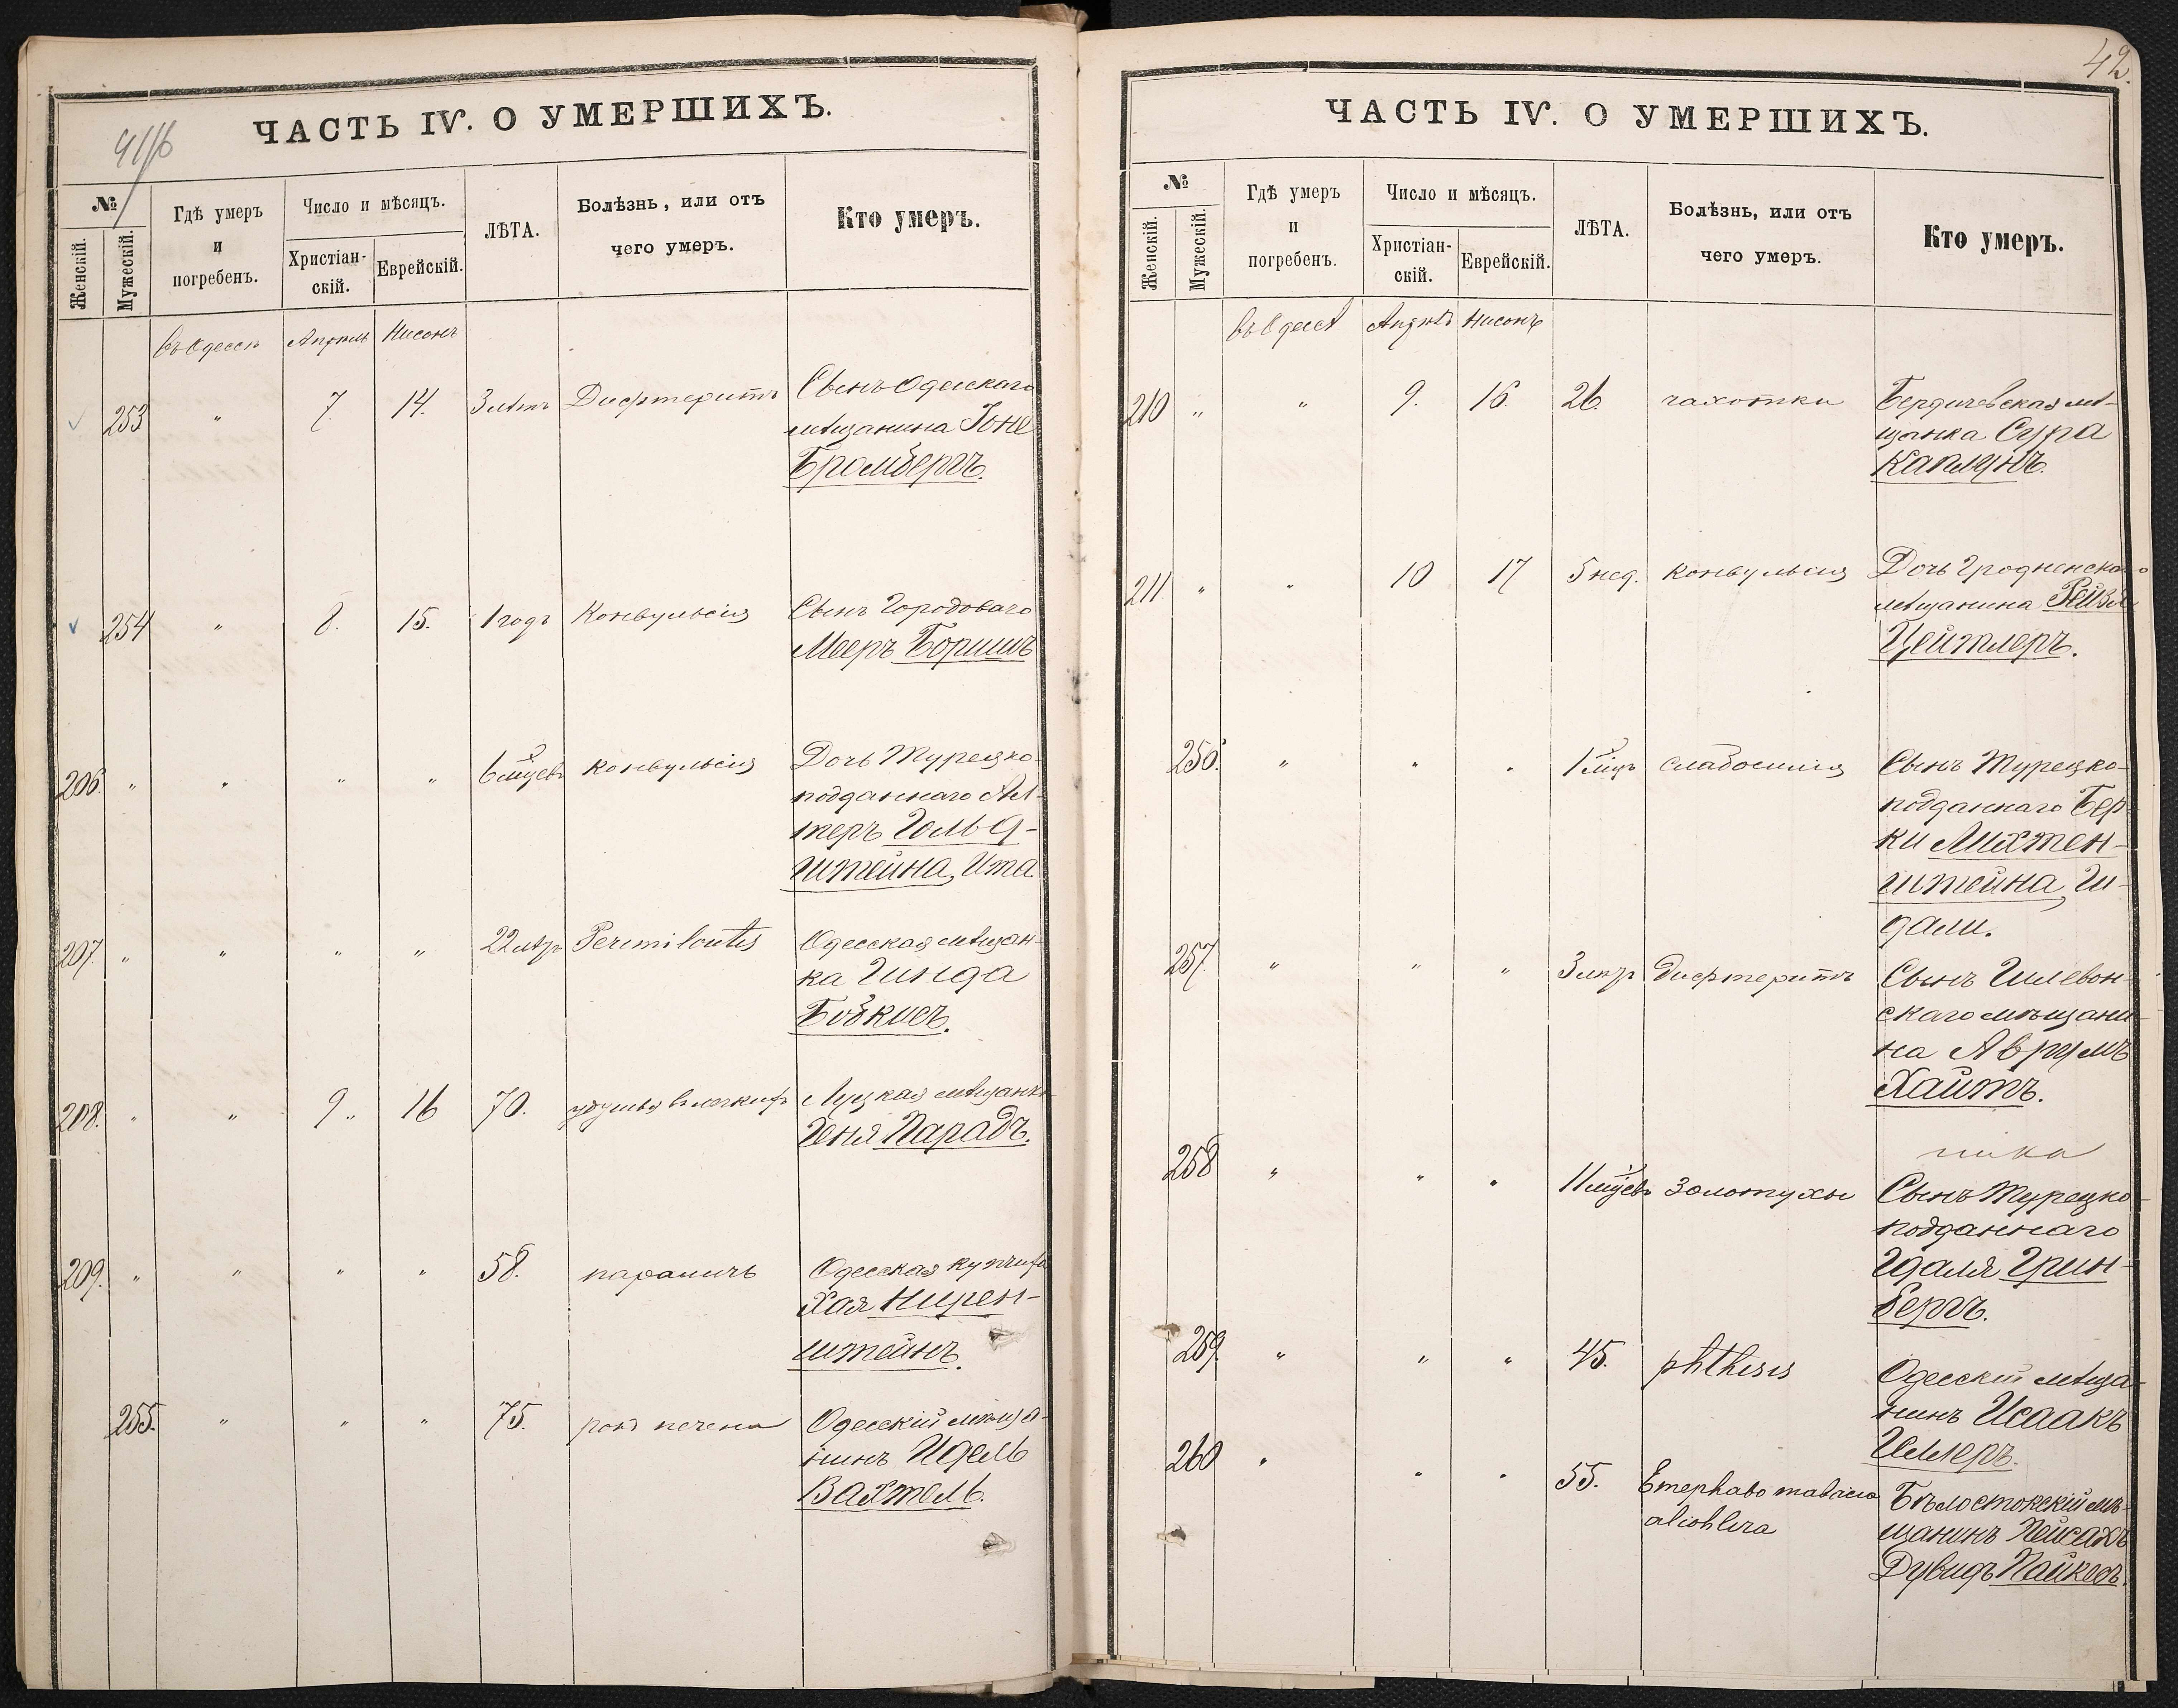 ЧАСТЬ IV. О УМЕРШИХЪ.
№
Женскій.
Мужескій.
Гдѣ умеръ
и
погребенъ.
Число и мѣсяцъ.
Христіан-
скій.
Еврейскій.
ЛѢТА.
Болѣзнь, или отъ
чего умеръ.
Кто умеръ.
въ Одессѣ Апрѣль Нисонъ
253 " 7. 14. 3 лѣтъ Дифтеритъ Сынъ Одесскаго
мѣщанина Іоне
Бромбергъ.
254 " 8. 15. 1 годъ Конвульсія Сынъ Городоваго
Мееръ Боришъ
206. " " " " 6 мцевъ конвульсія Дочь Турецко-
подданнаго Ал-
теръ Гольд-
штейна, Ита
207 " " " " 22 Одесская мѣщан-
ка Гинда
208. " " 9. 16 70. Луцкая мѣщанка
Геня Парадъ.
209. " " " " 58. параличъ Одесская купчиха
Хая Нирен-
штейнъ.
255. " " " 75. ракъ печени Одесскій мѣща-
нинъ Идель
Вахтель.
42.
ЧАСТЬ IV. О УМЕРШИХЪ.
№
Женскій.
Мужескій.
Гдѣ умеръ
и
погребенъ.
Число и мѣсяцъ.
Христіан-
скій.
Еврейскій.
ЛѢТА.
Болѣзнь, или отъ
чего умеръ.
Кто умеръ.
въ Одессѣ Апрѣль Нисонъ
210 " " 9. 16. 26. чахотки Бердичевская мѣ-
щанка Сура
Каплунъ.
211. " " 10 17 5 нед. конвульсія Дочь Гродненскаго
мѣщанина Рейзл
Цейтлеръ.
250. " " " 1 мцъ слабосилія Сынъ Турецко-
подданнаго Бер-
ки Лихтен-
штейна, Ш-
дали.
257. " " " 3 Дифтеритъ Сынъ
скаго мѣщани-
на Аврумъ
Хаитъ.
258 " " " 11 мцевъ Золотухи Сынъ Турецко-
подданнаго
Гдаля Грин-
бергъ.
259. " " " 45. phthisis Одесскій мѣща-
нинъ Исаакъ
260 " " " 55. Бѣлостокскій мѣ-
щанинъ Пейсахъ
Дувидъ Пайкесъ.